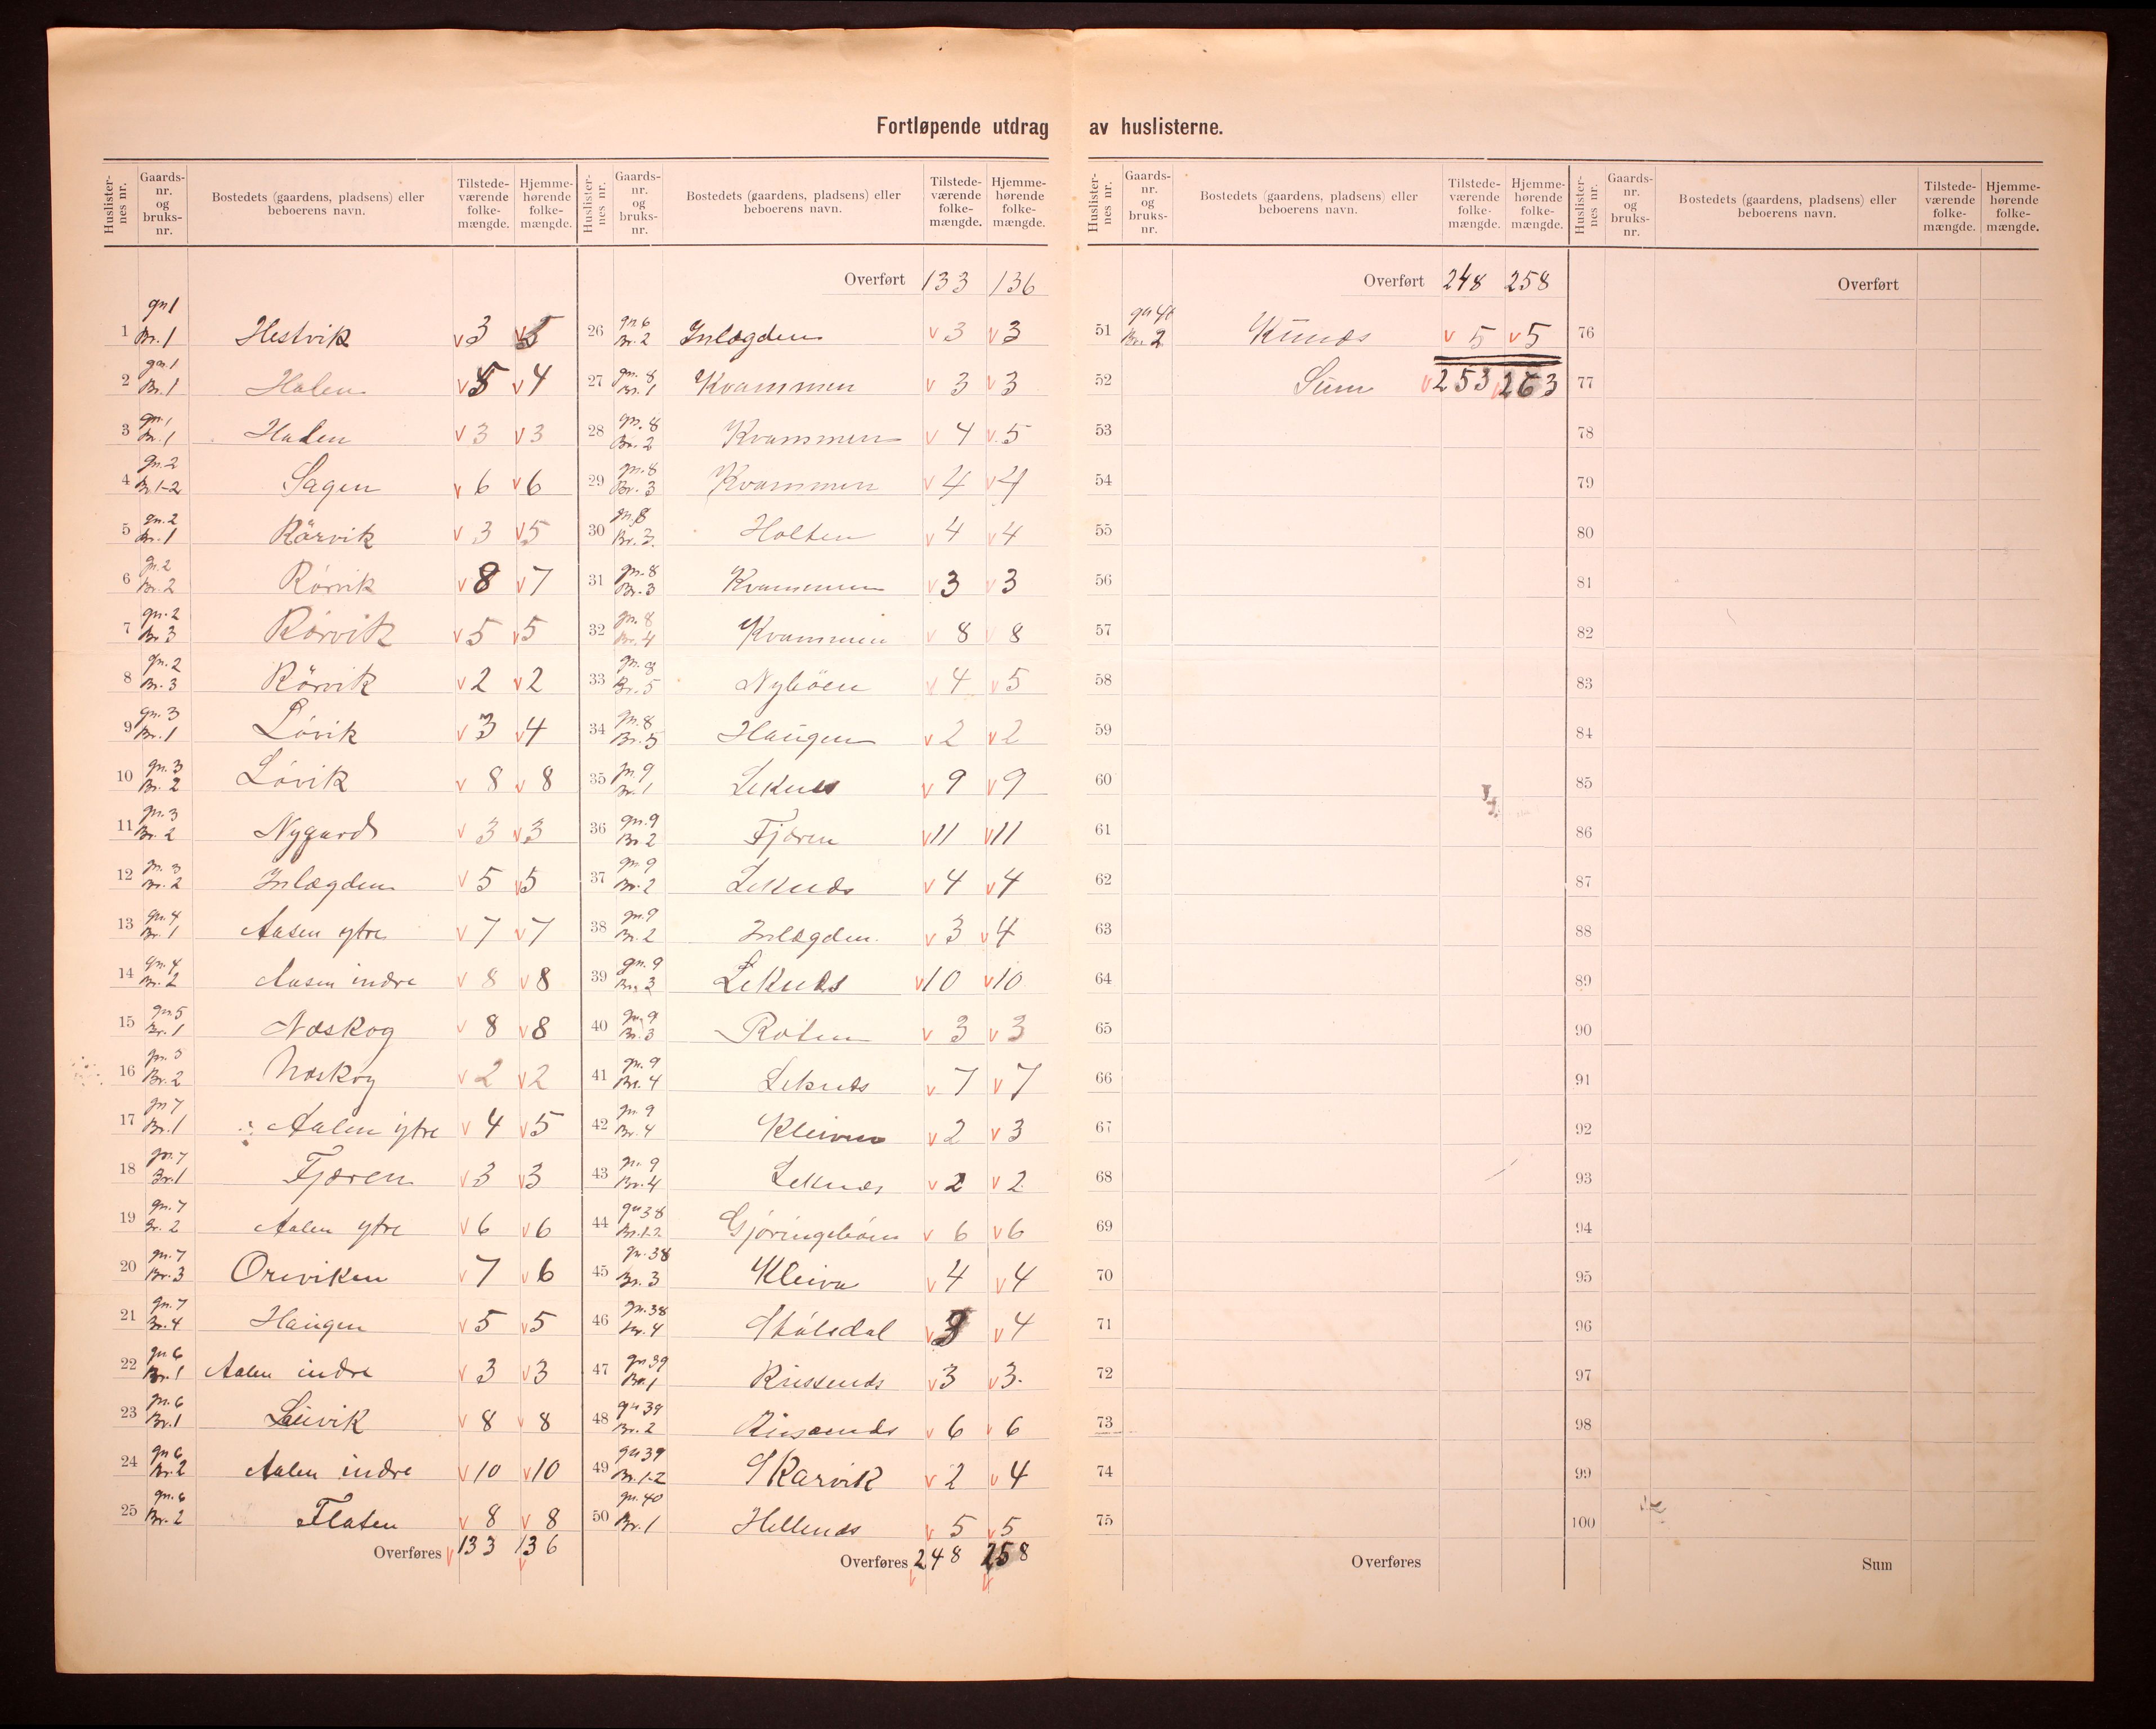 Fortløpende utdrag av huslisternes.
Huslister-nes nr. Gaards-nr. og bruks-nr. Bostedets (gaardens, pladsens) eller beboerens navn. Tilstede-værende folke-mængde. Hjemme-hørende folke-mængde.
gn 1
1 Br. 1 Hestvik v 3 v 5
gn. 1
2 Br. 1 Holen v 5 v 4
gn. 1
3 Br. 1 Haden v 3 v 3
gn. 2
4 Br. 1-2 Sagen v 6 v 6
gn. 2
5 Br. 1 Rörvik v 3 v 5
gn. 2
6 Br. 2 Rørvik v 8 v 7
gn. 2
7 Br. 3 Rørvik v 5 v 5
gn. 2
8 Br. 3 Rörvik v 2 v 2
gn. 3
9 Br. 1 Løvik v 3 v 4
gn. 3
10 Br. 2 Løvik v 8 v 8
gn. 3
11 Br. 2 Nygard v 3 v 3
gn. 3
12 Br. 2 Inlægden v 5 v 5
gn. 4
13 Br. 1 Aasen ytre v 7 v 7
gn. 4
14 Br. 2 Aasen indre v 8 v 8
gn. 5
15 Br. 1 Næskog v 8 v 8
gn. 5
16 Br. 2 Næskog v 2 v 2
gn 7
17 Br. 1 Aalen ytre v 4 v 5
gn. 7
18 Br. 1 Fjæren v 3 v 3
gn. 7
19 Br. 2 Aalen ytre v 6 v 6
gn. 7
20 Br. 3 Oreviken v 7 v 6
gn. 7
21 Br. 4 Haugen v 5 v 5
gn 6
22 Br. 1 Aalen indre v 3 v 3
gn. 6
23 Br. 1 Leivik v 8 v 8
gn 6
24 Br. 2 Aalen indre v 10 v 10
gn. 6
25 Br. 2 Flaten v 8 v 8
Overføres v 133 136
Huslister-nes nr. Gaards-nr. og bruks-nr. Bostedets (gaardens, pladsens) eller beboerens navn. Tilstede-værende folke-mængde. Hjemme-hørende folke-mængde.
Overført 133 136
gn. 6
26 Br. 2 Inlægden v 3 v 3
gn. 8
27 Br. 1 Kvammen v 3 v 3
gn. 8
28 Br. 2 Kvammen v 4 v 5
gn. 8
29 Br. 3 Kvammen v 4 v 4
gn. 8
30 Br. 3. Holten v 4 v 4
gn. 8
31 Br. 3 Kvammen v 3 v 3
gn. 8
32 Br. 4 Kvammen v 8 v 8
gn. 8
33 Br. 5 Nybøen v 4 v 5
gn. 8
34 Br. 5 Haugen v 2 v 2
gn. 9
35 Br. 1 Leknes v 9 v 9
gn. 9
36 Br. 2 Fjæren v 11 v 11
gn. 9
37 Br. 2 Leknæs v 4 v 4
gn. 9
38 Br. 2 Inlægden v 3 v 4
gn. 9
39 Br. 3 Leknæs v 10 v 10
gn. 9
40 Br. 3 Roten v 3 v 3
gn. 9
41 Br. 4 Leknæs v 7 v 7
gn. 9
42 Br. 4 Kleiven v 2 v 3
gn. 9
43 Br. 4 Leknæs v 2 v 2
gn 38
44 Br. 1-2. Gjøringsbøen v 6 v 6
gn. 38
45 Br. 3 Kleiva v 4 v 4
gn. 38
46 Br. 4 Stølsdal v 3 v 4
gn 39
47 Br. 1 v 3 v 3.
gn 39
48 Br. 2 v 6 v 6
gn 39
49 Br. 1-2 Skarvik v 2 v 4
gn. 40
50 Br. 1 Hellenæs v 5 v 5
Overføres 248 258
Huslister-nes nr. Gaards-nr. og bruks-nr. Bostedets (gaardens, pladsens) eller beboerens navn. Tilstede-værende folke-mængde. Hjemme-hørende folke-mængde.
Overført 248 258
51 Br. 2 v 5 v 5
52 Sum v 253 v 263
53
54
55
56
57
58
59
60
61
62
63
64
65
66
67
68
69
70
71
72
73
74
75
Overføres
Huslister-nes nr. Gaards-nr. og bruks-nr. Bostedets (gaardens, pladsens) eller beboerens navn. Tilstede-værende folke-mængde. Hjemme-hørende folke-mængde.
Overført
76
77
78
79
80
81
82
83
84
85
86
87
88
89
90
91
92
93
94
95
96
97
98
99
100
Sum